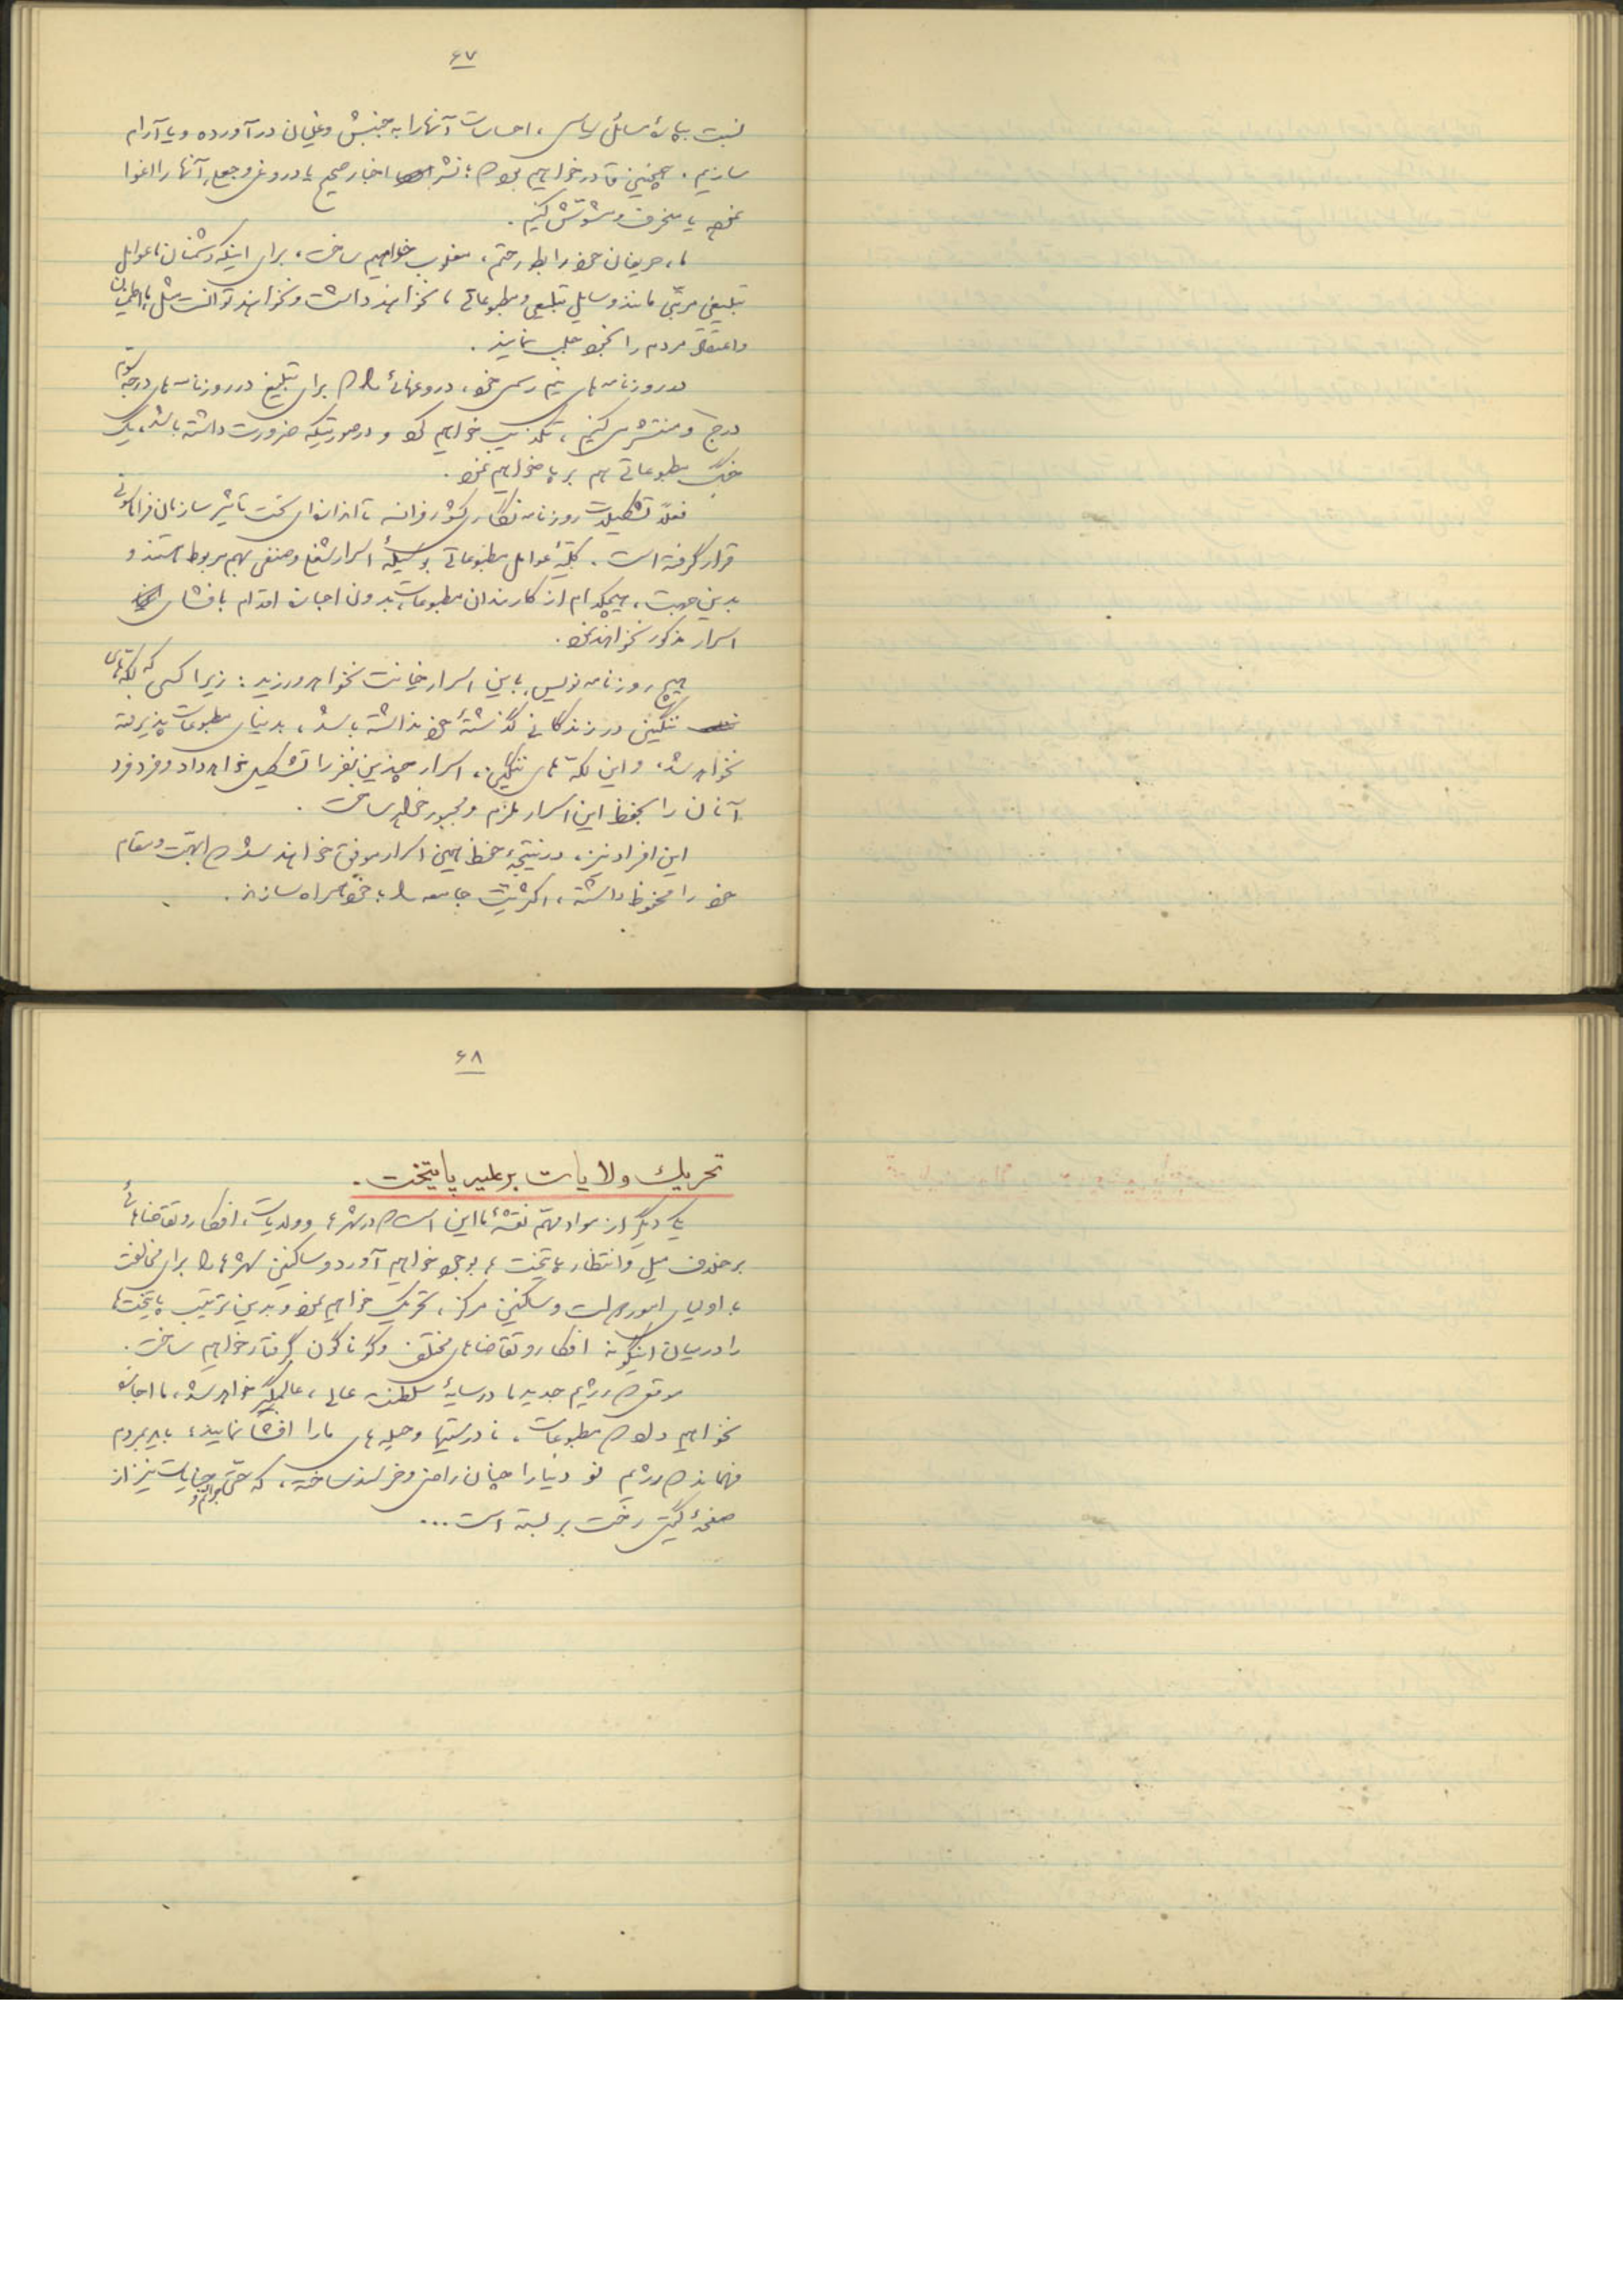 ۶۷
نسبت بپاره‌ای مسائل سیاسی، احساسات آنها را به جنبش و غلیان در آورده و یا آرام
سازیم. همچنین قادر خواهیم بود که با نشر اخبار صحیح یا دروغ و جعلی آنها را اغوا
نموده یا منحرف و مشوش کنیم.
ما، حریفان خود را بطور حتم، مغلوب خواهیم ساخت، برای اینکه دشمنان ما عوامل
تبلیغی مرتبی مانند وسایل تبلیغی و مطبوعاتی ما نخواهند داشت و نخواهند توانست مثل ما اطمینان
و اعتقاد مردم را بخود جلب نمایند.
در روزنامه‌های نیم رسمی خود، دروغهائی را که برای تبلیغ در روزنامه‌های درجه سوم
درج و منتشر می‌کنیم، تکذیب خواهیم کرد و در صورتیکه ضرورت داشته باشد، یک
جنگ مطبوعاتی هم بر پا خواهیم نمود.
فعلاً تشکیلات روزنامه نگاری کشور فرانسه تا اندازه‌ای تحت تأثیر سازمان فراماسونی
قرار گرفته است. کلیهٔ عوامل مطبوعاتی بوسیلهٔ اسرار شغلی و صنفی بهم مربوط هستند و
بدین جهت، هیچکدام از کارمندان مطبوعات بدون اجازه اقدام بافشای
اسرار مذکور نخواهند نمود.
هیچ روزنامه نویسی باین اسرار خیانت نخواهد ورزید: زیرا کسی که لکه‌های
ننگینی در زندگانی گذشتهٔ خود نداشته باشد، بدنیای مطبوعات پذیرفته
نخواهد شد، و این لکه‌های ننگین، اسرار چندین نفر را تشکیل خواهد داد و فرد فرد
آنان را بحفظ این اسرار ملزم و مجبور خواهد ساخت.
این افراد نیز، در نتیجهٔ حفظ همین اسرار موفق خواهند شد که ابهت و مقام
خود را محفوظ داشته، اکثریت جامعه را با خود همراه سازند.
۶۸
تحریك ولایات بر علیه پایتخت.
یک دیگر از مواد مهم نقشهٔ ما این است که در شهرها و ولایات، افکار و تقاضاهائی
بر خلاف میل و انتظار پایتخت‌ها، بوجود خواهیم آورد و ساکنین شهرها را برای مخالفت
با اولیای امور دولت و ساکنین مرکز، تحریک خواهیم نمود و بدین ترتیب پایتختها
را در میان اینگونه افکار و تقاضاهای مختلف و گوناگون گرفتار خواهیم ساخت.
موقعی که رژیم جدید ما در سایهٔ سلطنت عالی، عالمگیر خواهد شد، ما اجازه
نخواهیم داد که مطبوعات، نادرستیها و حیله‌های ما را افشا نمایند، باید بمردم
فهماند که رژیم نو دنیا را چنان راضی و خرسند ساخته، که حتی جرائم و جنایات نیز از
صفحهٔ گیتی رخت بر بسته است...